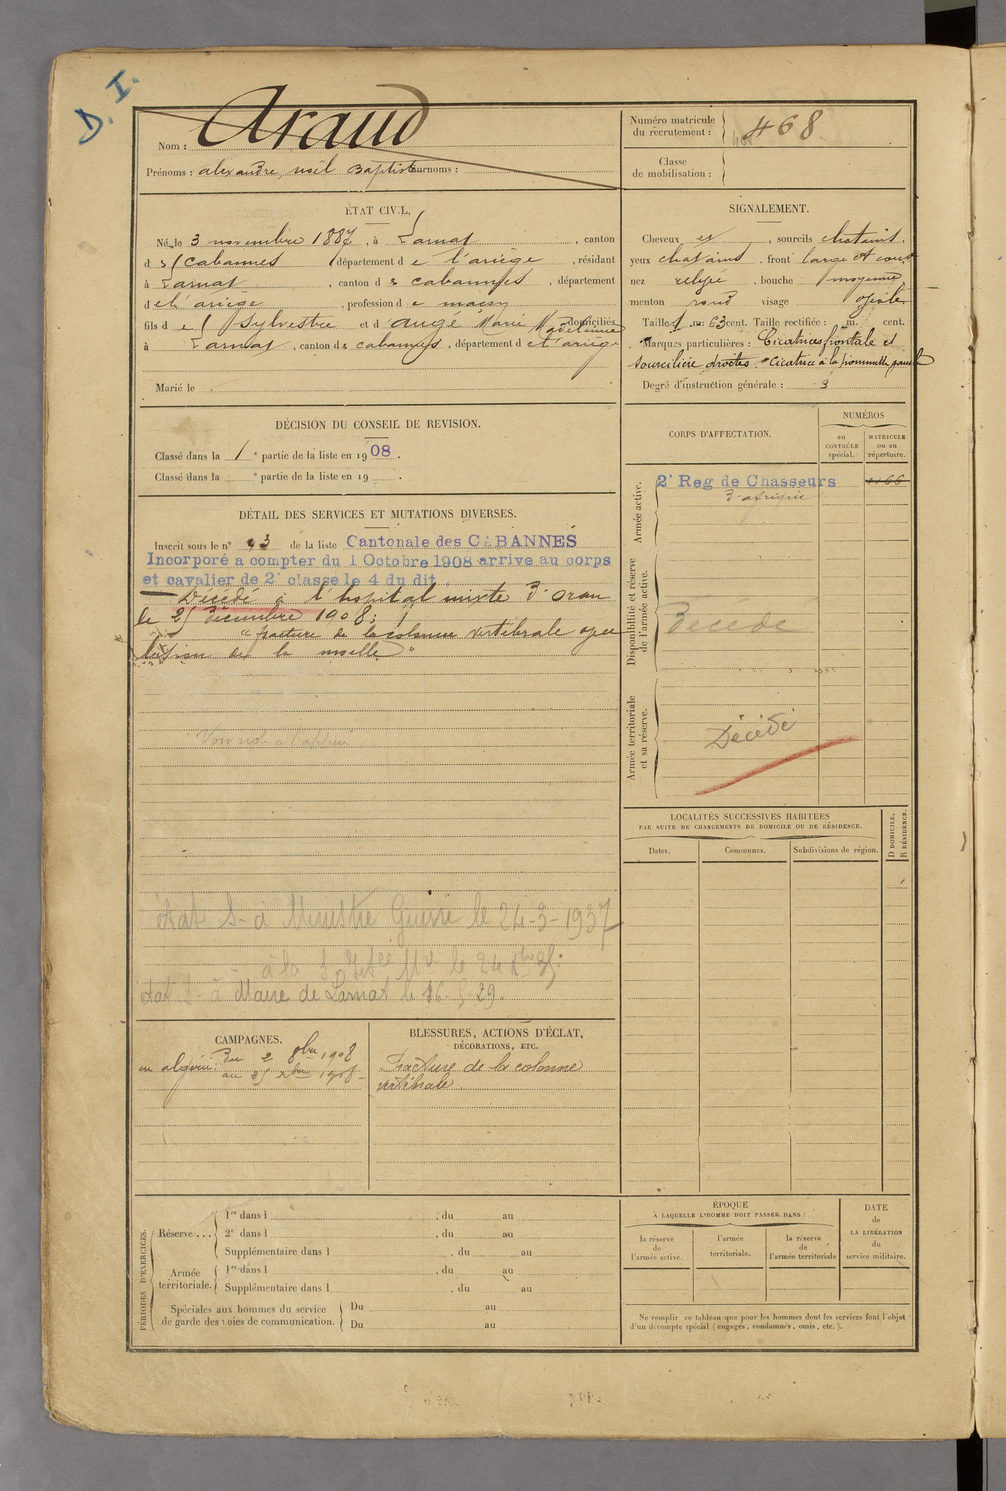 D. I.
Nom : Araud
Prénoms : alexandre, noël Baptiste Surnoms :
Numéro matricule du recrutement : 468
Classe de mobilisation :
ÉTAT CIVIL.
Né le 3 novembre 1887, à Larnat, canton
d es Cabannes, département d e l'ariège, résidant
à Larnat, canton d es cabannes, département
d e l'ariège, profession d e maçon
fils d e Sylvestre et d augé Marie Madeleine domiciliés
à Larnat, canton des cabannes, département d e l'ariège
Marié le
SIGNALEMENT.
Cheveux et, sourcils chatains.
yeux chatains, front large et court
nez relevé, bouche moyenne
menton rond visage ovale
Taille 1 m. 63 cent. Taille rectifiée : m. cent.
Marques particulières : Cicatrices frontale et
sourcilière droites. Cicatrice à la pommette gauche
Degré d'instruction générale : 3
DÉCISION DU CONSEIL DE REVISION.
Classé dans la 1e partie de la liste en 1908.
Classé dans la e partie de la liste en 19 .
DÉTAIL DES SERVICES ET MUTATIONS DIVERSES.
Inscrit sous le n° 43 de la liste Cantonale des CABANNES
Incorporé a compter du 1 Octobre 1908 arrive au corps
et cavalier de 2e classe le 4 du dit.
Décédé à l'hopital mixte d'oran
le 25 décembre 1908 ;
"fracture de la colonne vertébrale avec
lésion de la moelle"
état S- à Ministre Guerre le 24-3-1937
à la le 24
état S- à Maire de Larnat le 16 29.
CORPS D'AFFECTATION.
NUMÉROS
au CONTRÔLE spécial.
MATRICULE ou au répertoire.
Armée active.
2e Reg de Chasseurs
d'afrique
Disponibilité et réserve de l'armée active.
Décédé
Armée territoriale et sa réserve.
Décédé
LOCALITÉS SUCCESSIVES HABITÉES
PAR SUITE DE CHANGEMENTS DE DOMICILE OU DE RÉSIDENCE.
Dates.
Communes.
Subdivisions de région.
D DOMICILE.
R RÉSIDENCE.
CAMPAGNES.
en algérie : Du 2 8bre 1908
au 25 Xbre 1908
BLESSURES, ACTIONS D'ÉCLAT,
DÉCORATIONS, ETC.
Fracture de la colonne
vertébrale
PÉRIODES D'EXERCICES.
Réserve ...
1re dans l , du au
2e dans l , du au
Supplémentaire dans l , du au
Armée territoriale.
1re dans l , du au
Supplémentaire dans l , du au
Spéciales aux hommes du service
de garde des voies de communication.
Du au
Du au
ÉPOQUE
À LAQUELLE L'HOMME DOIT PASSER DANS :
la réserve de l'armée active.
l'armée territoriale.
la réserve de l'armée territoriale
DATE
de
LA LIBÉRATION
du
service militaire.
Ne remplir ce tableau que pour les hommes dont les services font l'objet
d'un décompte spécial (engagés, condamnés, omis, etc.).